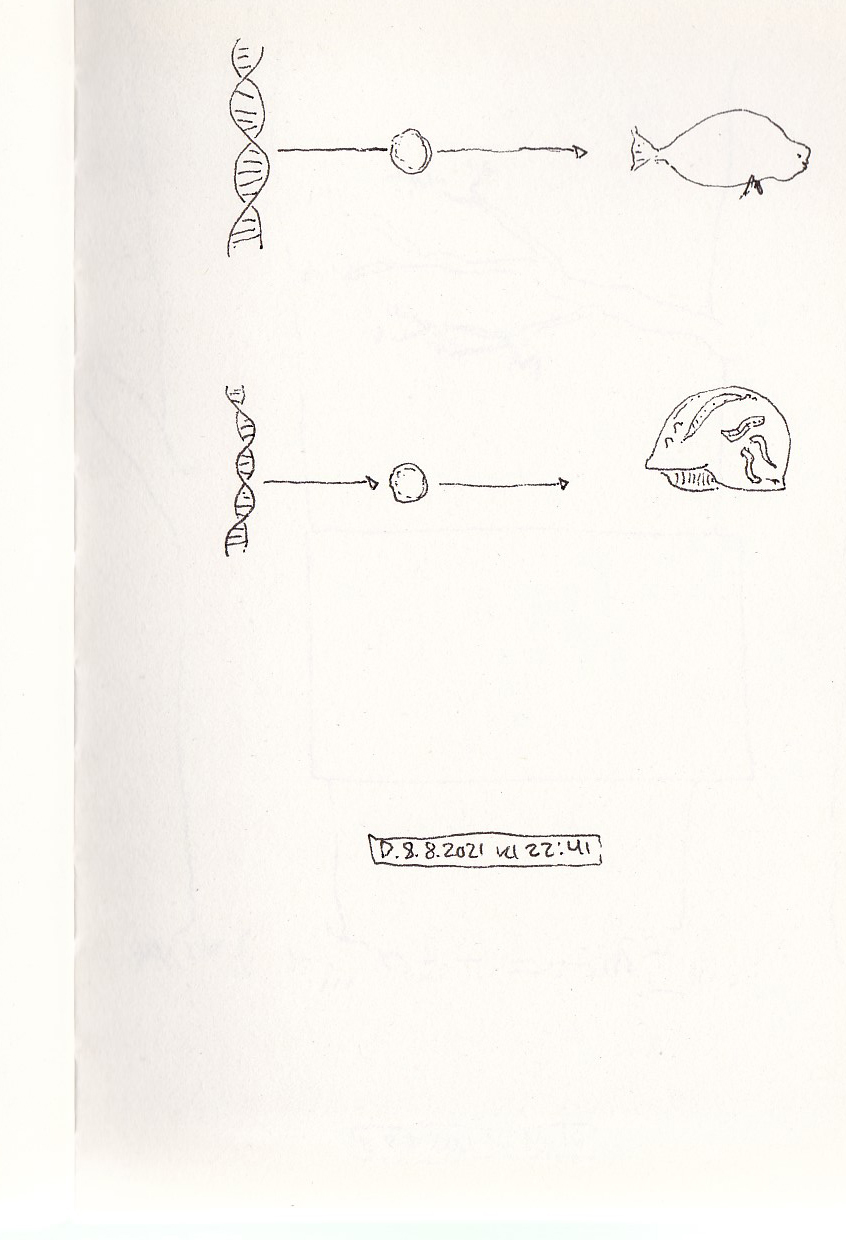 D. 8.8.2021 kl 22:41